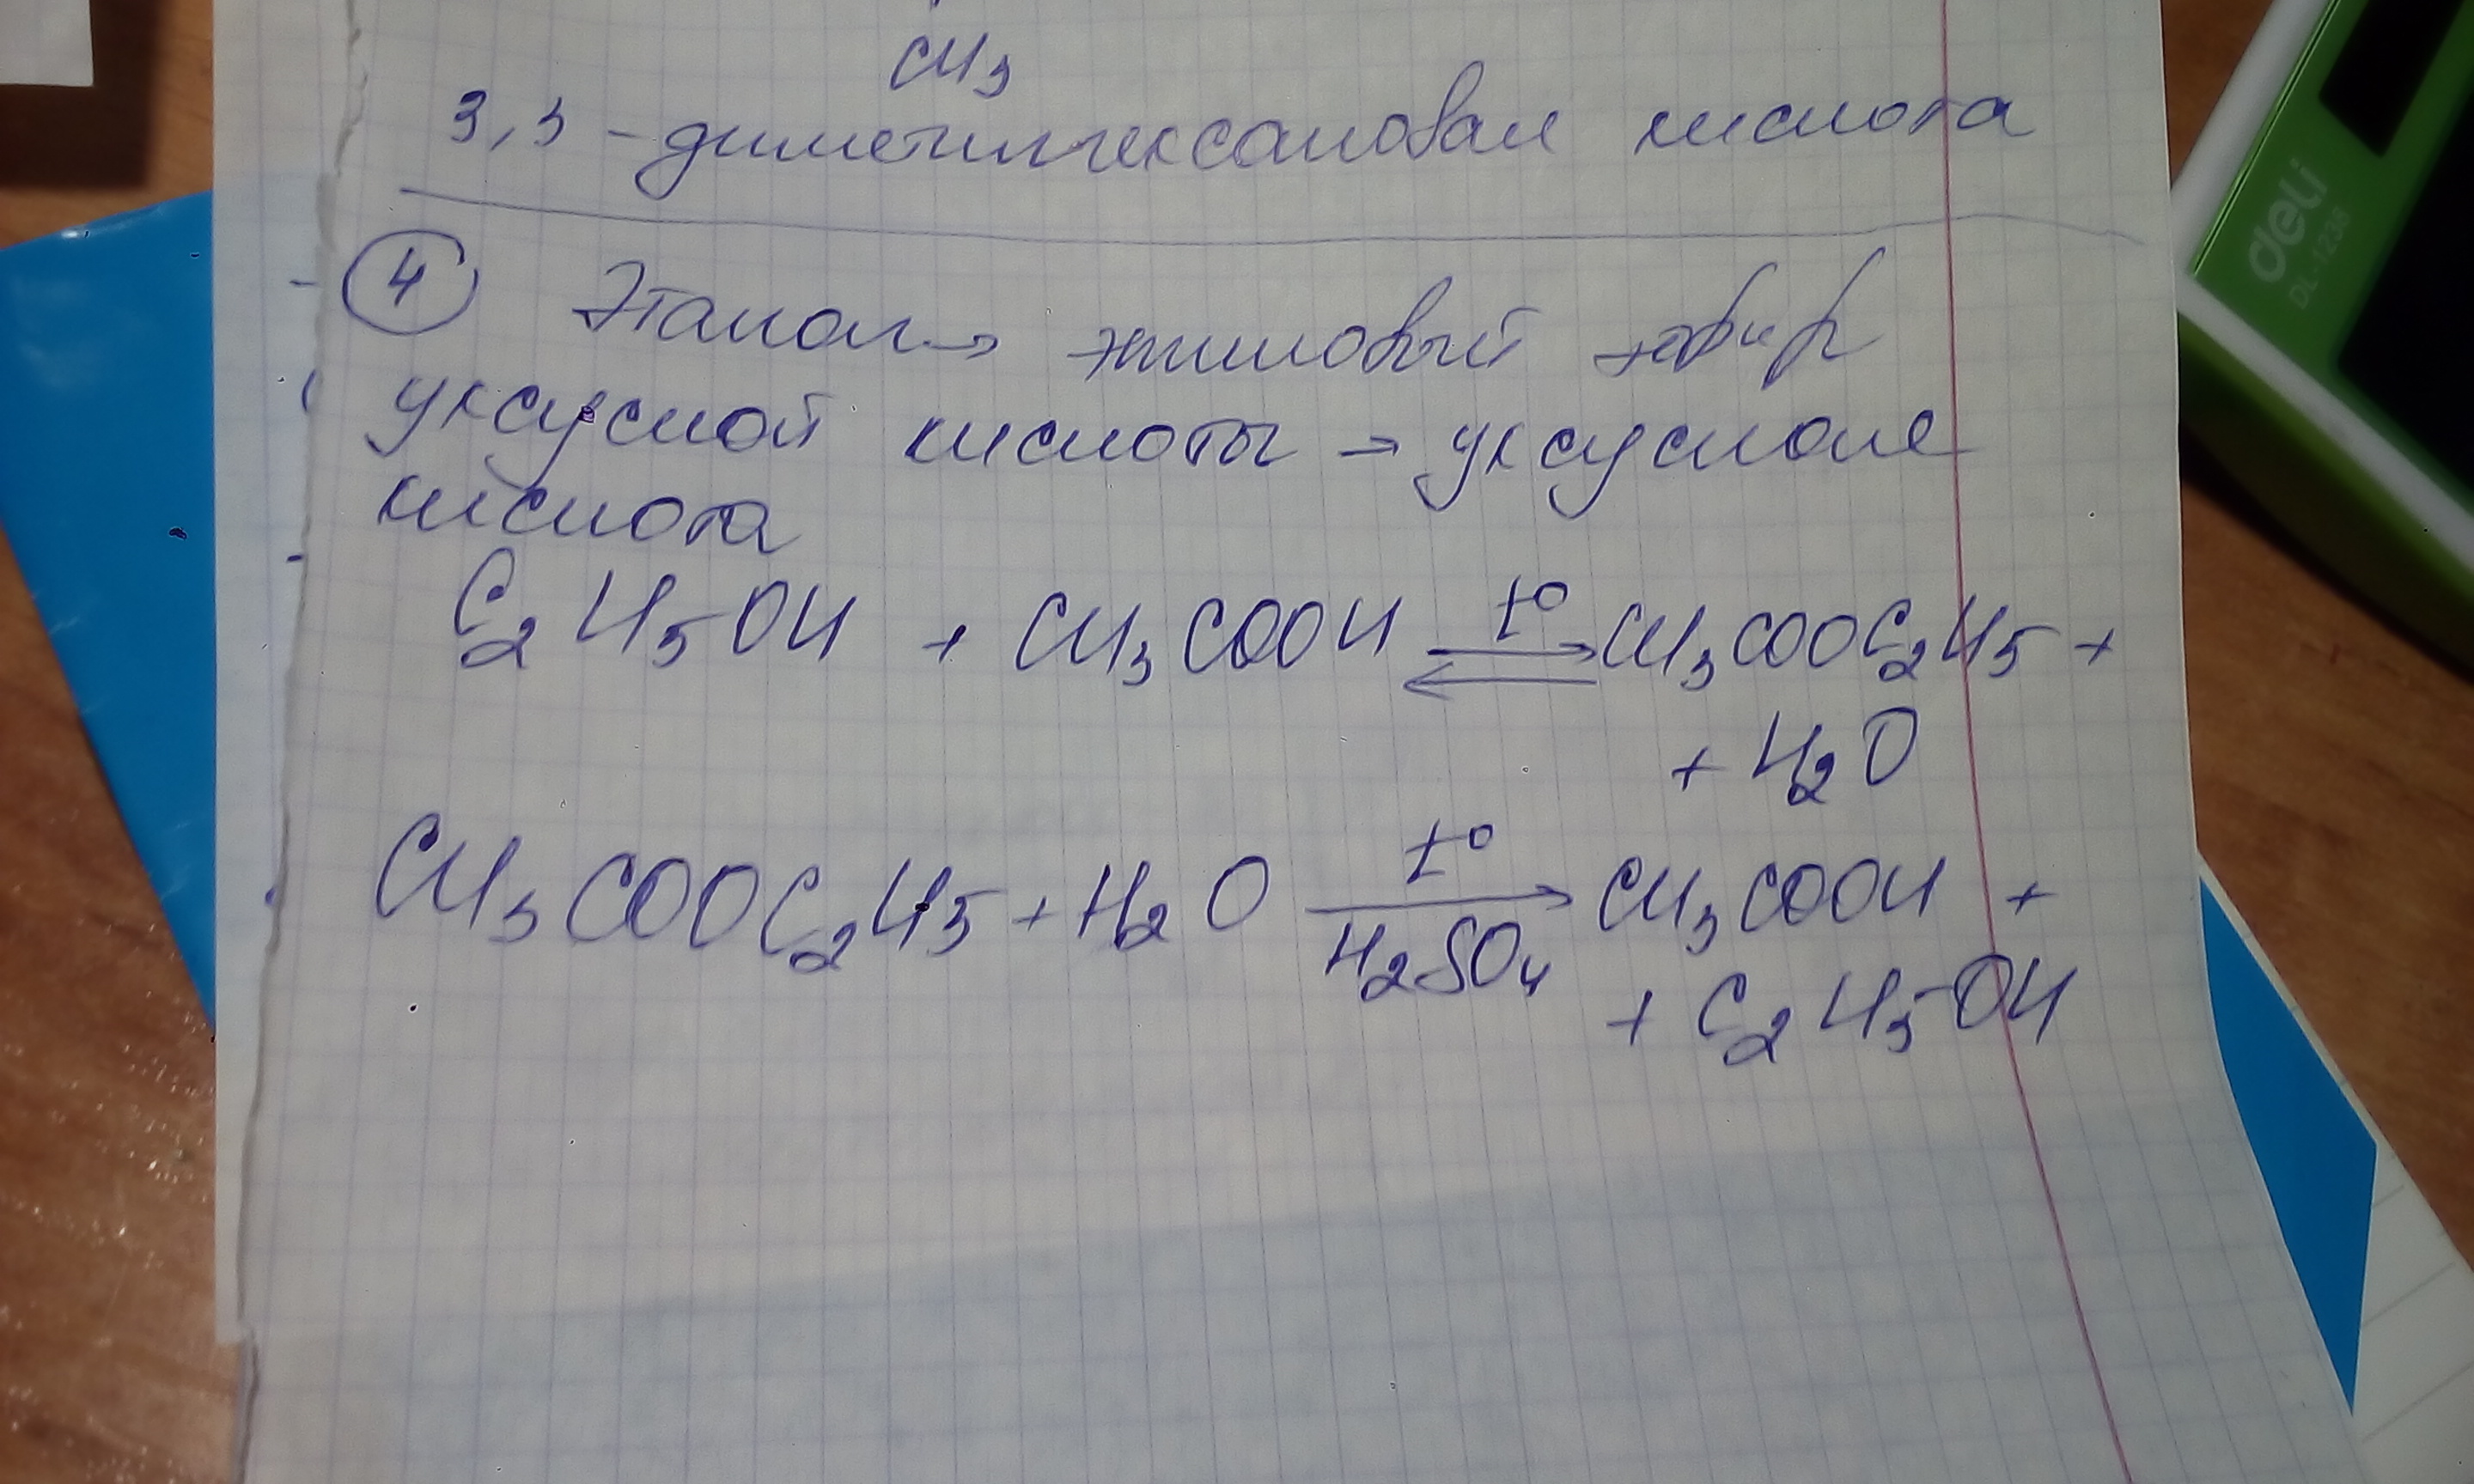 CH3
3,3 - диметилгексановая кислота
4 Этанол → этиловый эфир
уксусной кислоты → уксусная
кислота
C2H5OH + CH3COOH ⇌ t° CH3COOC2H5 +
+ H2O
CH3COOC2H5 + H2O t° → H2SO4 CH3COOH +
+ C2H5OH
deli
DL-1238